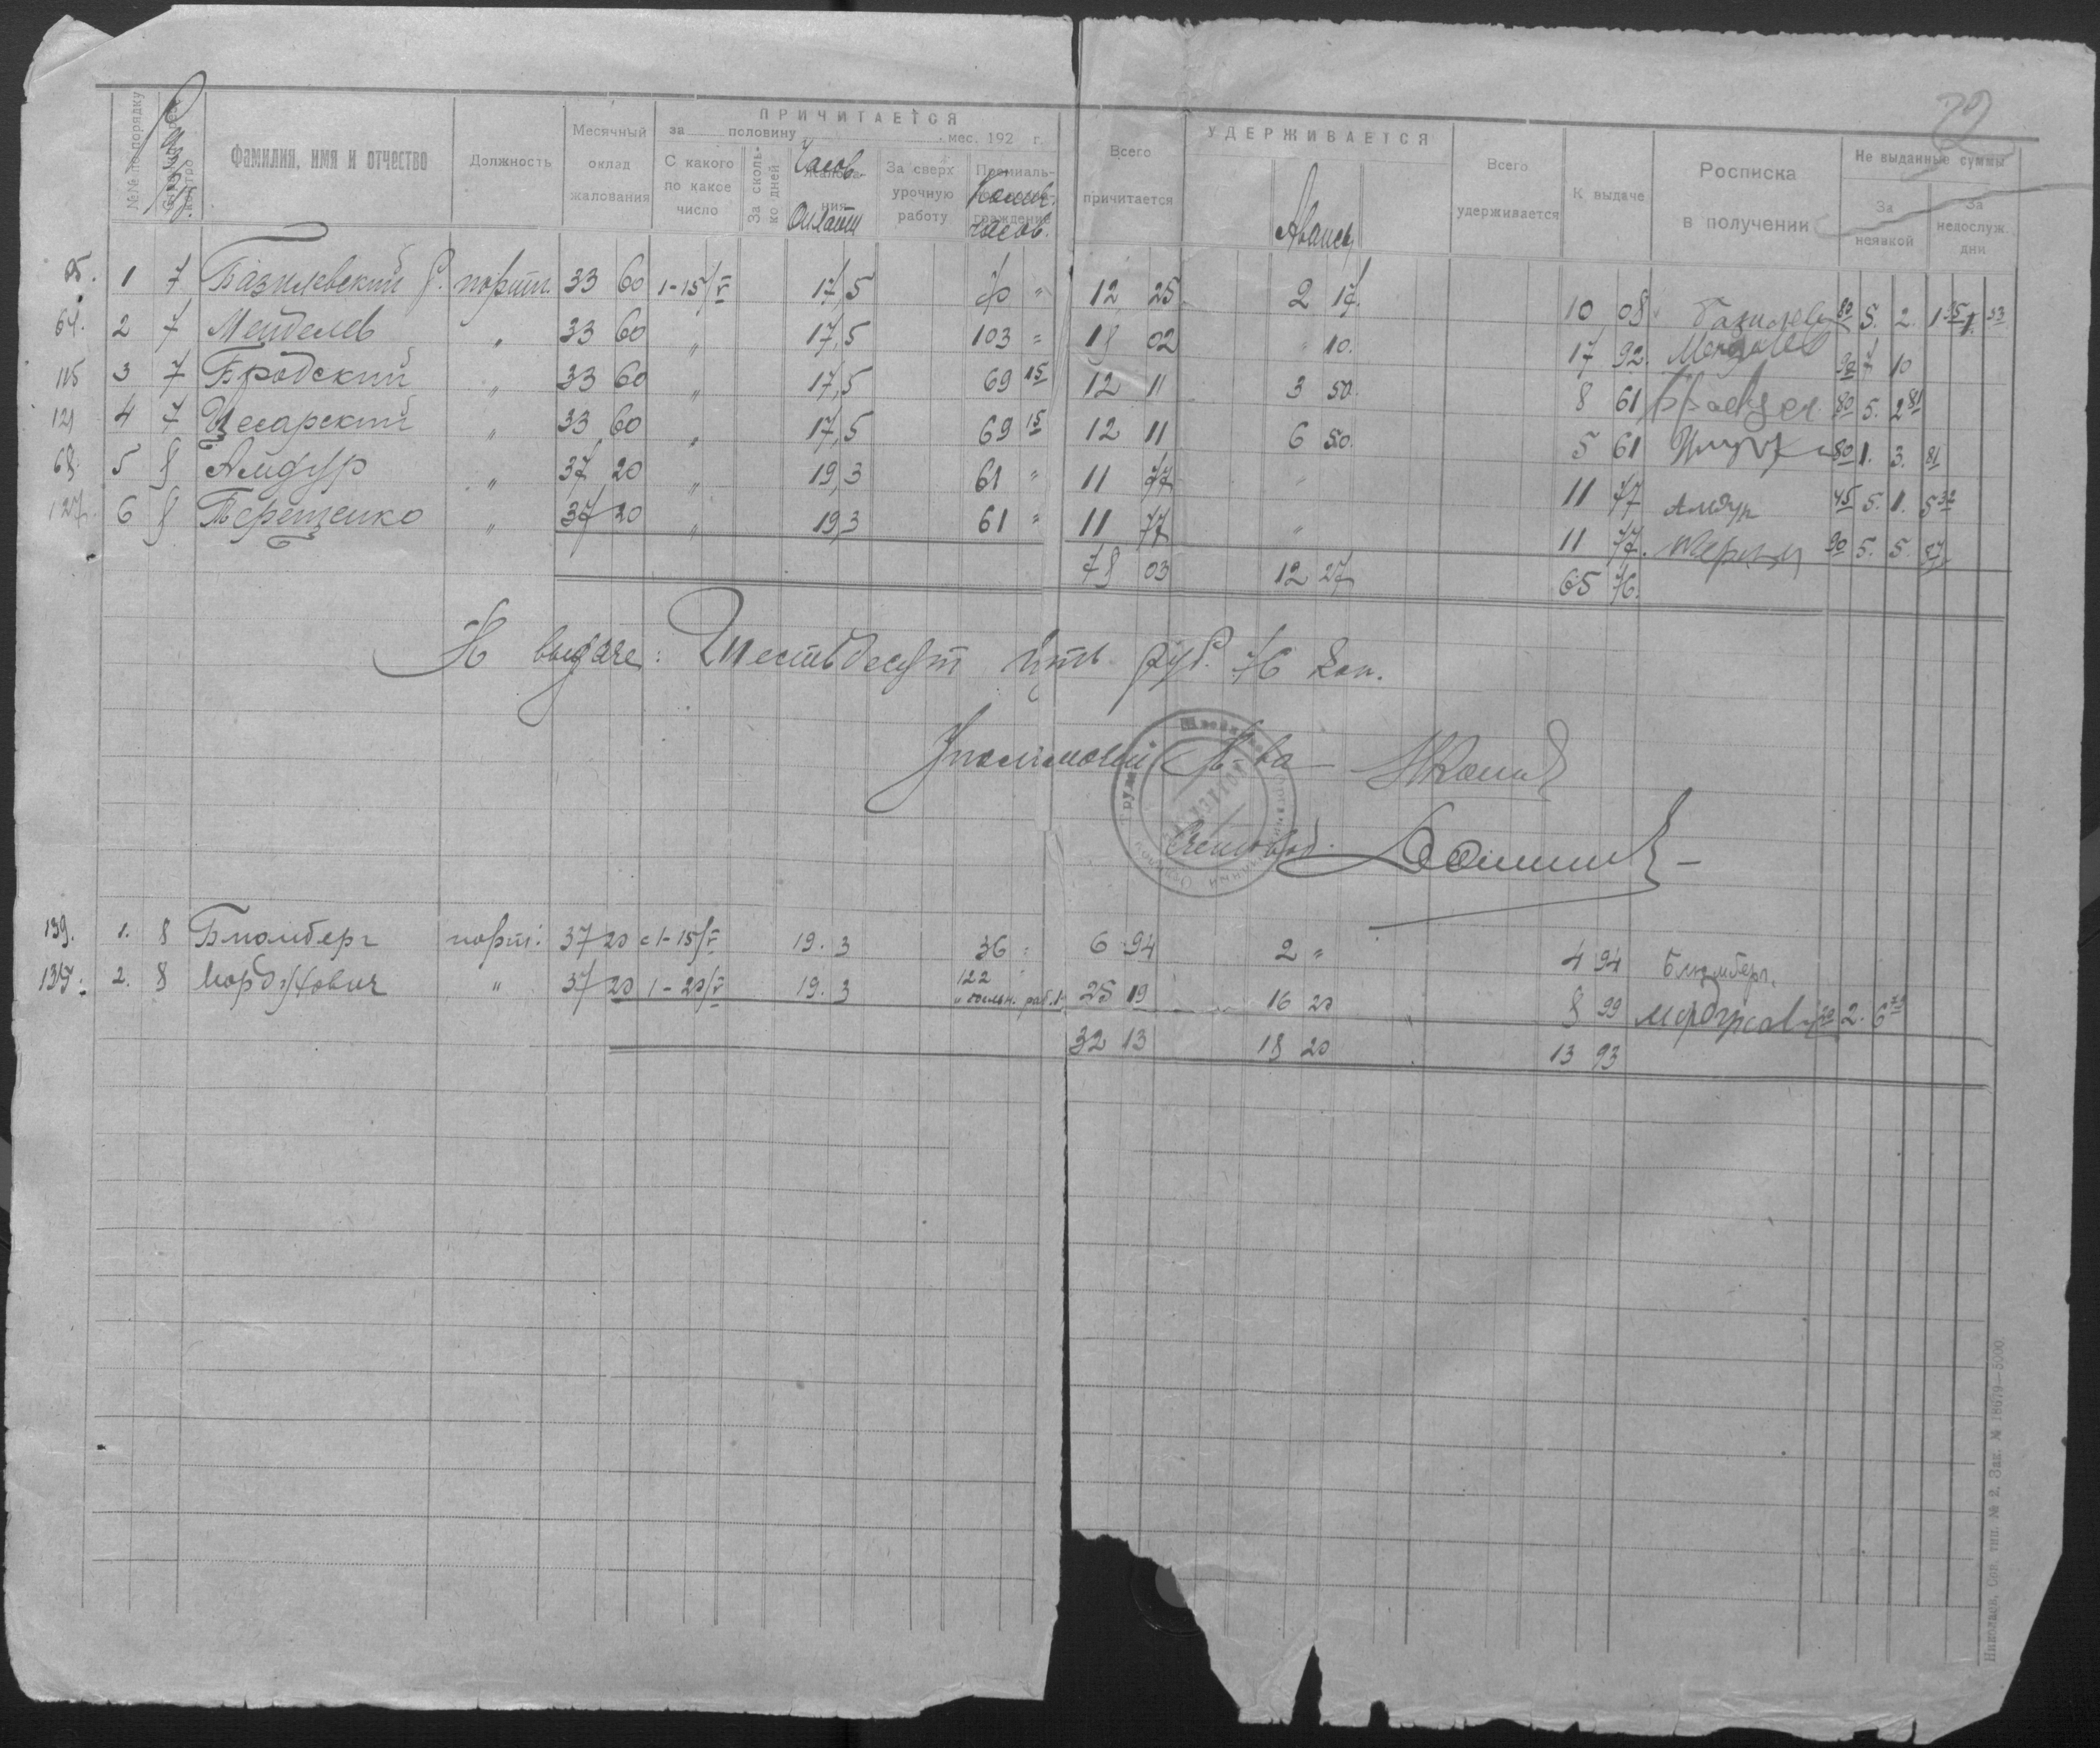 22
ПРИЧИТАЕТСЯ
УДЕРЖИВАЕТСЯ
№№ по порядку
Фамилия, имя и отчество
Должность
Месячный оклад жалования
за половину мес. 192 г.
С какого по какое число
За сколько дней
Часов. Оплата
За сверх урочную работу
Колич. часов.
Всего причитается
Авансы
Всего удерживается
К выдаче
Росписка в получении
Не выданные суммы
За неявкой
За недослуж. дни
1 7 Базилевский порти. 33 60 1-15/V 17,5 70 " 12 25 2 17. 10 08 5. 2.
64. 2 7 Мейделев " 33 60 " 17,5 103 = 18 02 " 10. 17 92. 7 10
115 3 7 Бродский " 33 60 " 17,5 69 15 12 11 3 50. 8 61 80 5. 2 81
129 4 7 Цесарский " 33 60 " 17,5 69 15 12 11 6 50. 5 61 80 1. 3. 81
68. 5 8 Амдур " 37 20 " 19,3 61 " 11 77 " 11 77 Амдур 45 5. 1. 5 32
127. 6 8 Терещенко " 37 20 " 19,3 61 = 11 77 " 11 77. 90 5. 5. 87
78 03 12 27 65 76.
К выдаче: Шестьдесят пять руб. 76 коп.
Счетовод.
139. 1. 8 Блюмберг порт. 37 20 с 1-15/V 19. 3 36 = 6 94 2 " 4 94 Блюмберг.
2. 8 Мордухович " 37 20 1-20/V 19. 3 122 25 19 16 20 8 99 2. 6
32 13 18 20 13 93
Николаев, Сов. тип. № 2. Зак. № 18679—5000.